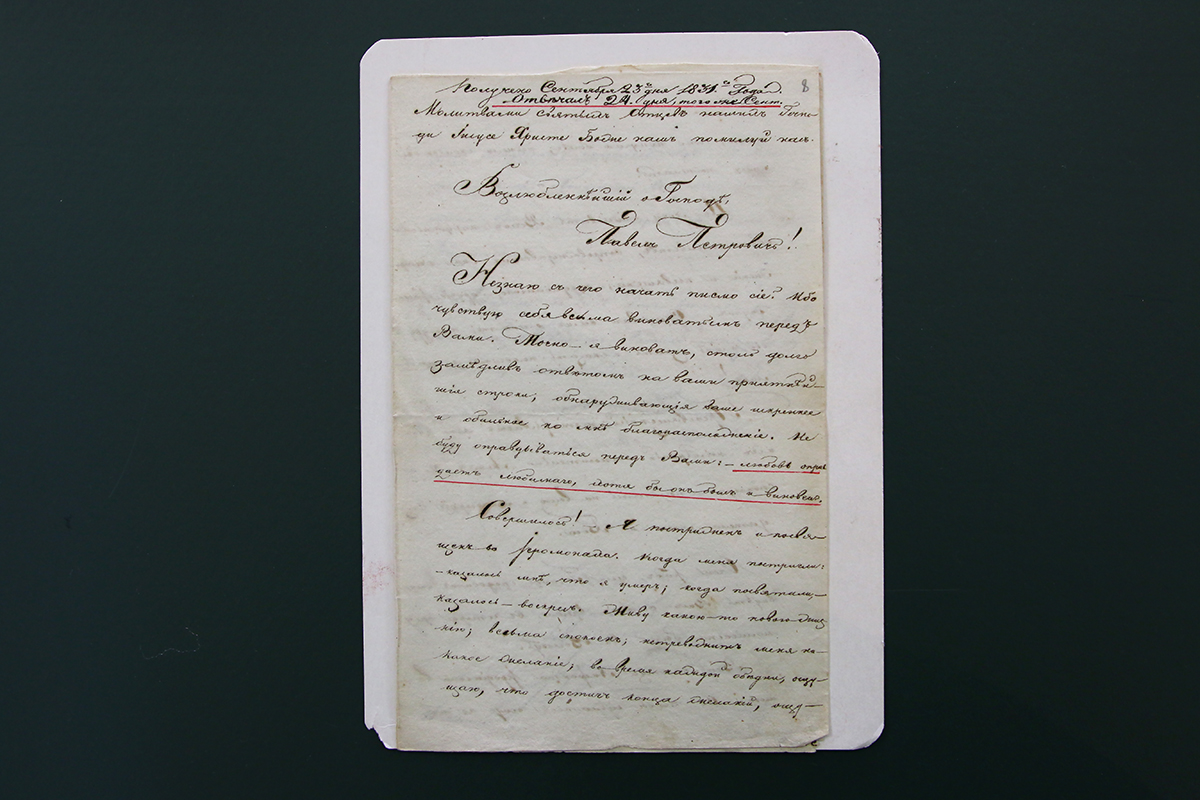 8
Получено Сентября 23го дня 1831го Года.
Отвѣчалъ 24. дня, того же Сент.
Молитвами святыхъ Отецъ нашихъ Госпо-
ди Іисусе Христе Боже нашъ помилуй насъ.
Возлюбленнѣйшій о Господѣ,
Павелъ Петровичъ!
Незнаю съ чего начать письмо сіе? Ибо
чувствую себя весьма виноватымъ передъ
Вами. Точно – я виноватъ, столь долго
замѣдливъ отвѣтомъ на ваши пріятнѣй–
шія строки, обнаруживающія ваше искреннее
и обильное ко мнѣ благорасположеніе. Не
буду оправдываться передъ Вами: – любовь оправ
даетъ любимаго, хотя бы онъ былъ и виновенъ.
Совершилось! Я постриженъ и посвя–
щенъ во Іеромонаха. Когда меня постригли:
– казалось мнѣ, что я умеръ; когда посвятили, –
казалось – воскресъ. Живу какою-то новою жиз
нію; весьма спокоенъ; нетревожитъ меня ни–
какое желаніе; во время каждой обѣдни, ощу–
щаю, что достигъ конца желаній, ощу–